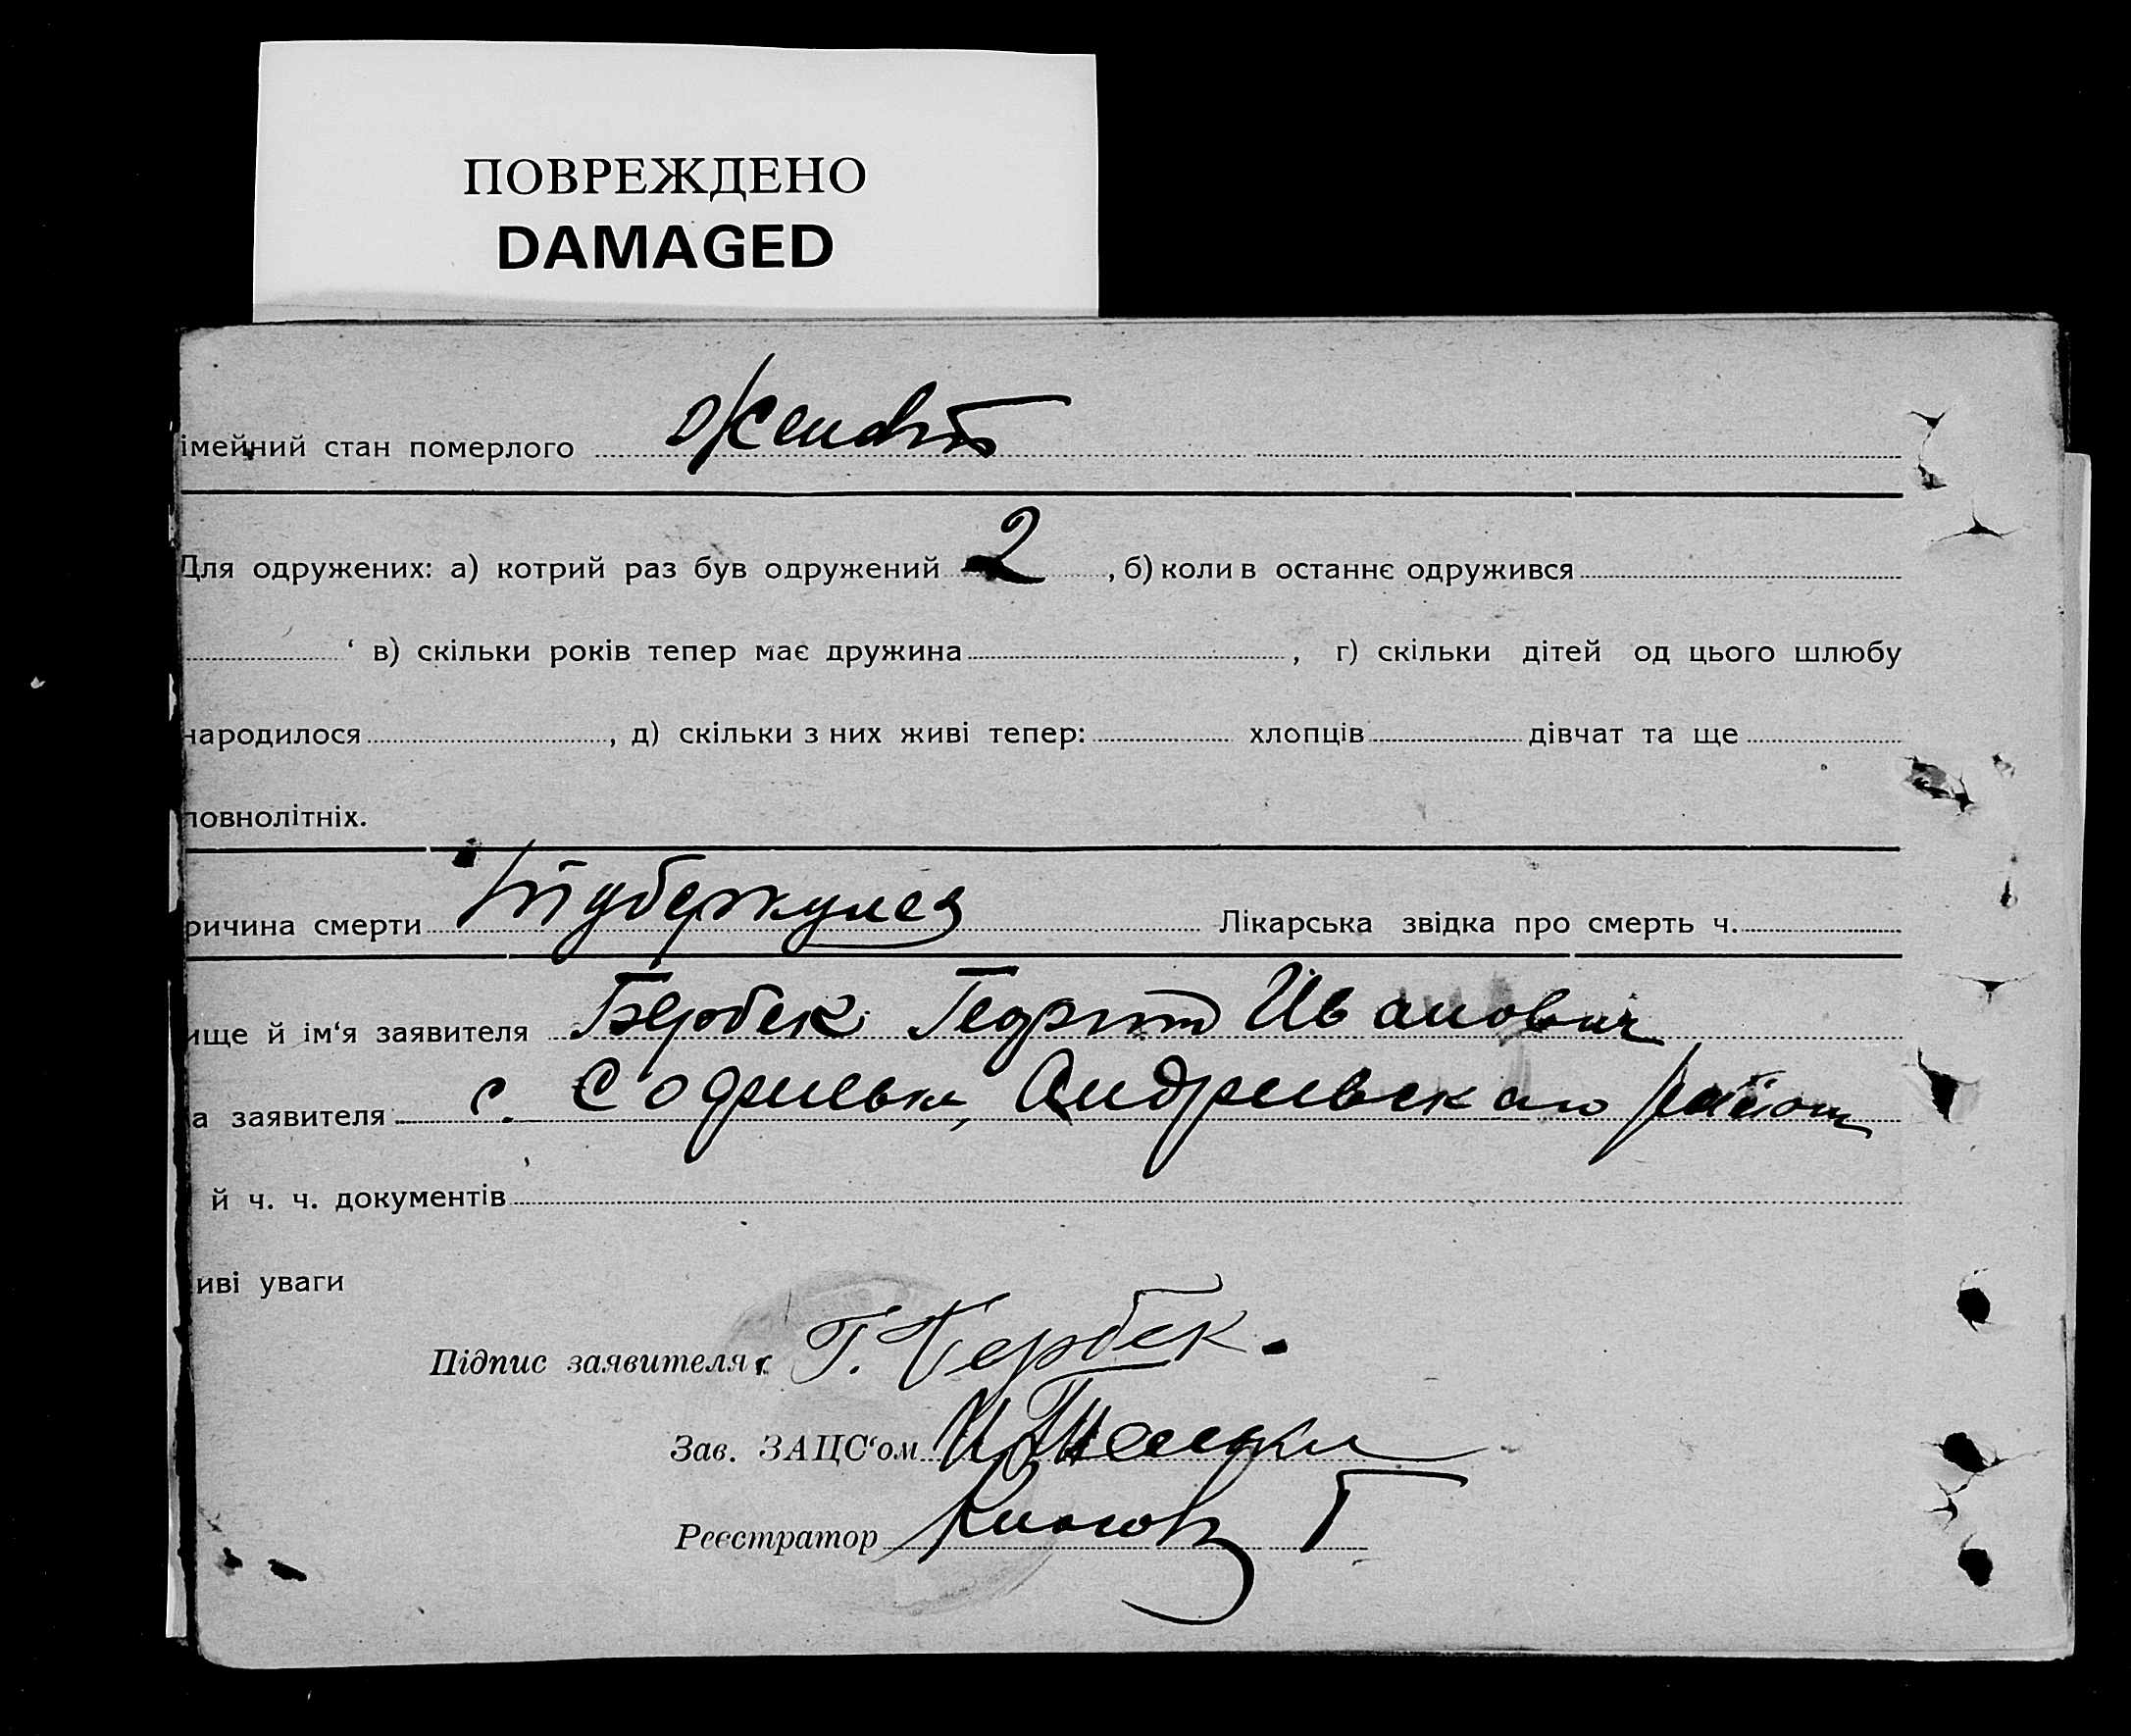 ПОВРЕЖДЕНО
DAMAGED
імейний стан померлого женат
Для одружених: а) котрий раз був одружений 2 , б) коли в останнє одружився
в) скільки років тепер має дружина , г) скільки дітей од цього шлюбу
народилося , д) скільки з них живі тепер: хлопців дівчат та ще
повнолітніх.
ричина смерти туберкулез Лікарська звідка про смерть ч.
ище й ім'я заявителя Бербек Георгий Иванович
а заявителя с. Андреевского района
й ч. ч. документів
иві уваги
Підпис заявителя Г. Бербек.
Зав. ЗАЦС'ом
Реєстратор